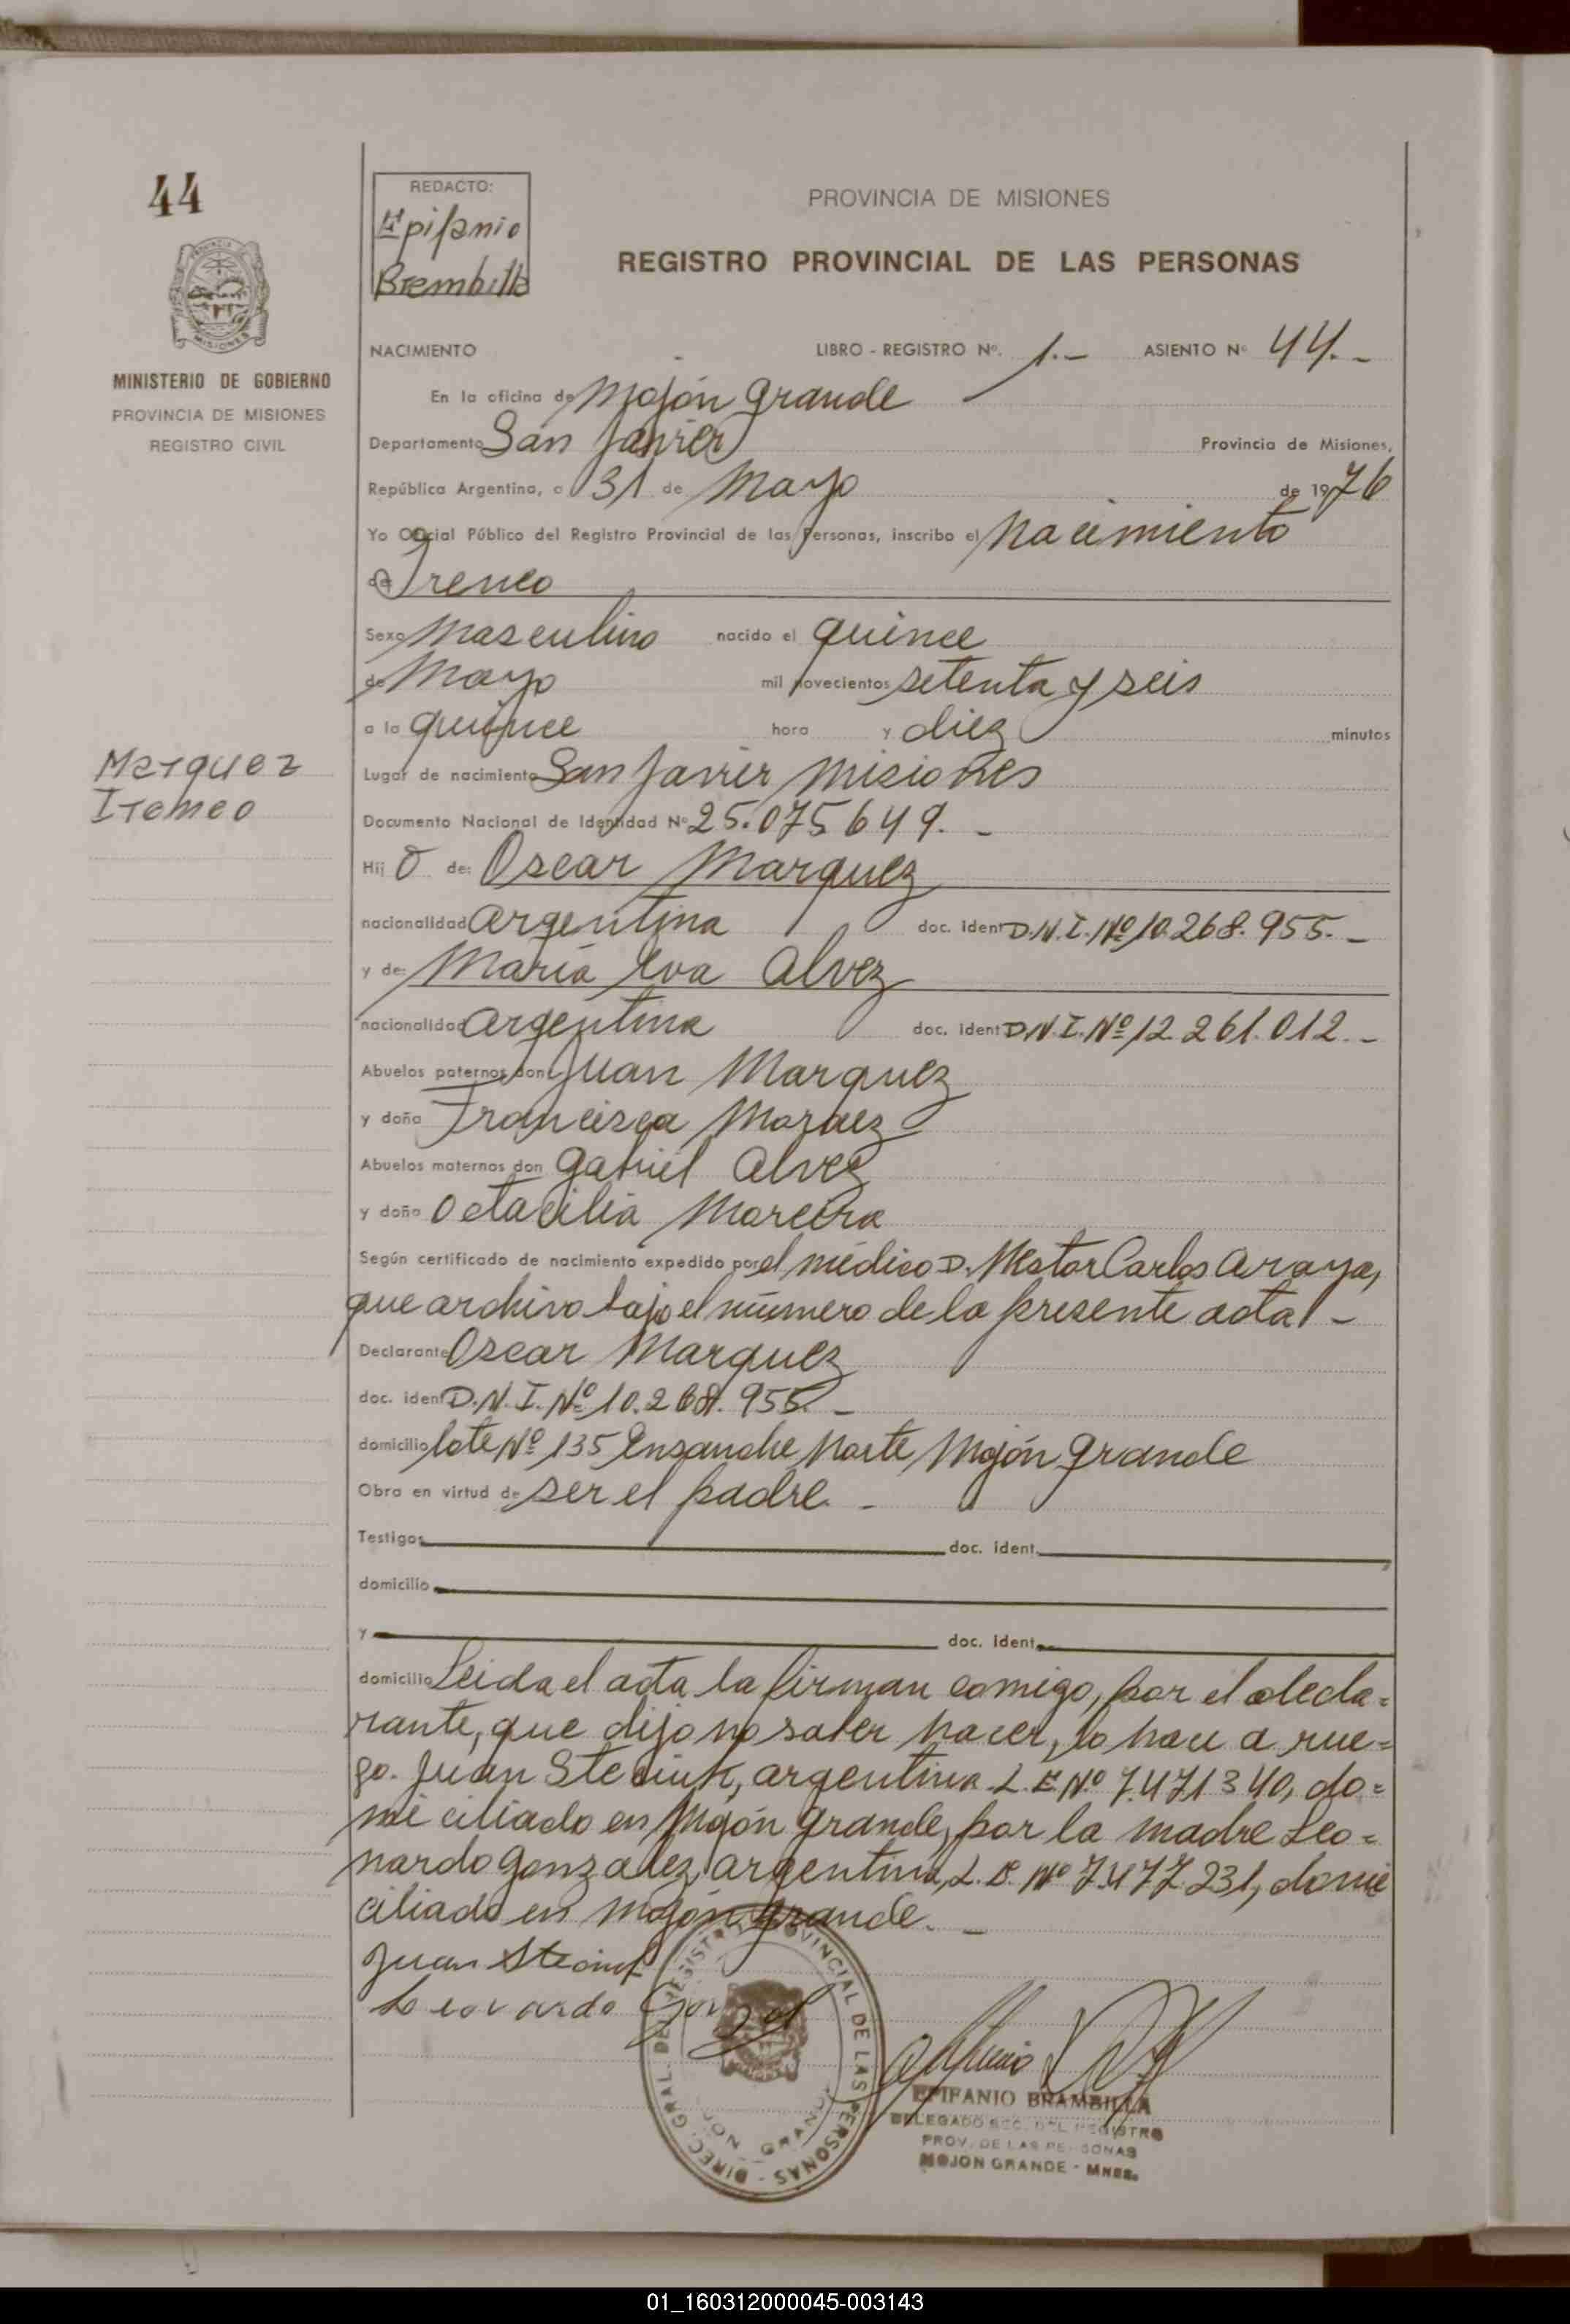 44
REDACTO:
Epifanio
Brembilla
PROVINCIA DE MISIONES
REGISTRO PROVINCIAL DE LAS PERSONAS
MINISTERIO DE GOBIERNO
PROVINCIA DE MISIONES
REGISTRO CIVIL
NACIMIENTO LIBRO - REGISTRO Nº. 1.- ASIENTO Nº 44.-
En la oficina de Mojón Grande
Departamento San Javier Provincia de Misiones,
República Argentina, a 31 de Mayo de 1976
Yo Oficial Público del Registro Provincial de las Personas, inscribo el Nacimiento
de Ireneo
Sexo Masculino nacido el quince
de Mayo mil novecientos setenta y seis
a la quince hora y diez minutos
Marquez
Ireneo
Lugar de nacimiento San Javier Misiones
Documento Nacional de Identidad Nº 25.075649.-
Hij o de: Oscar Marquez
nacionalidad argentina doc. ident D.N.I. Nº 10.268.955.-
y de: María Eva Alvez
nacionalidad argentina doc. ident D.N.I. Nº 12.261.012.-
Abuelos paternos don Juan Marquez
y doña Francisca Moraez
Abuelos maternos don Gabriel Alvez
y doña Octacilia Moreira
Según certificado de nacimiento expedido por el médico D. Nestor Carlos Araya,
que archivo bajo el número de la presente acta.-
Declarante Oscar Marquez
doc. ident D.N.I. Nº 10.268.955.-
domicilio lote Nº 135 Ensanche Norte Mojón Grande
Obra en virtud de ser el padre.-
Testigos doc. ident.
domicilio
y doc. ident.
domicilio Leida el acta la firman comigo, por el decla=
rante, que dijo no saber hacer, lo hace a rue=
go. Juan , argentina L.E. Nº 7.471340, do=
miciliado en Mojón Grande, por la madre Leo=
nardo Gonzalez, argentina, L.E. Nº 7.477.231, domi
ciliado en Mojón Grande.-
Juan
Leonardo
DIREC. GRAL. DEL REGISTRO PROVINCIAL DE LAS PERSONAS
MOJON GRANDE
EPIFANIO BRAMBILLA
DELEGADO SEC. DEL REGISTRO
PROV. DE LAS PERSONAS
MOJON GRANDE - MNES.
01_160312000045-003143